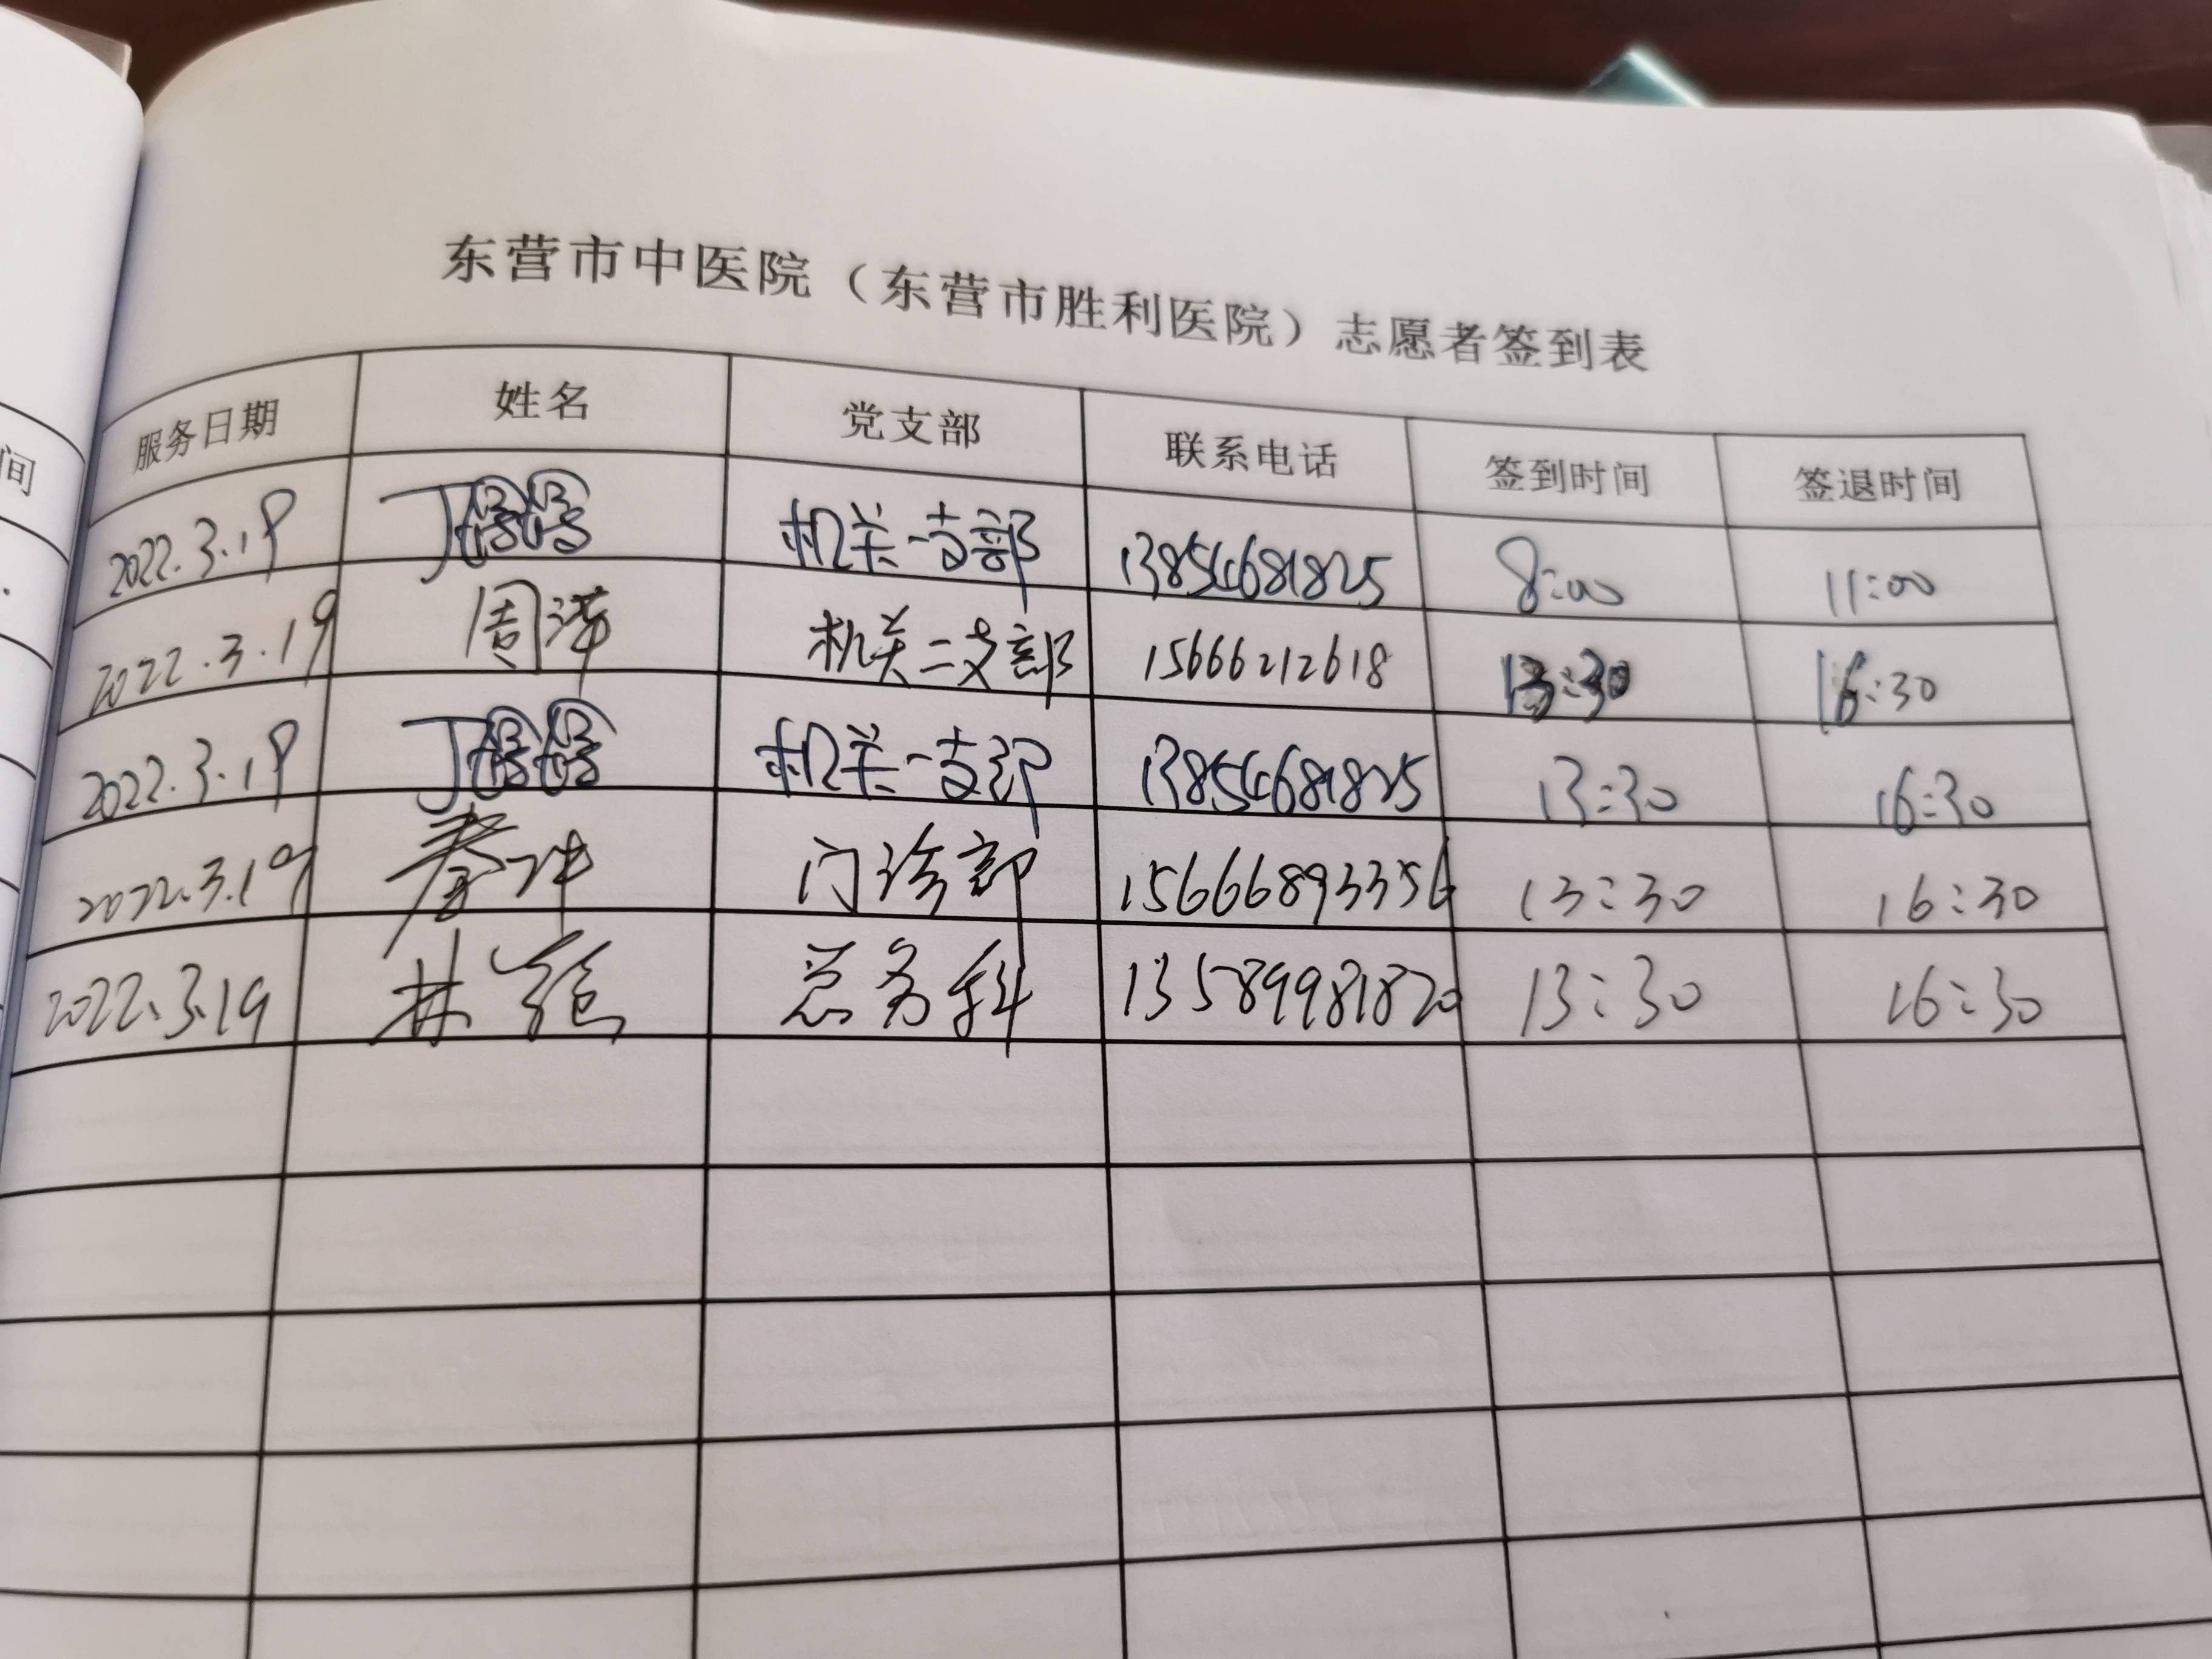 东营市中医院（东营市胜利医院）志愿者签到表
间 服务日期 姓名 党支部 联系电话 签到时间 签退时间
2022.3.19 丁 机关一支部 13854681825 8:00 11:00
2022.3.19 周洋 机关二支部 15666212618 13:30 16:30
2022.3.19 丁 机关一支部 13854681825 13:30 16:30
2022.3.19 秦冲 门诊部 15666893356 13:30 16:30
2022.3.19 林 总务科 13589981820 13:30 16:30